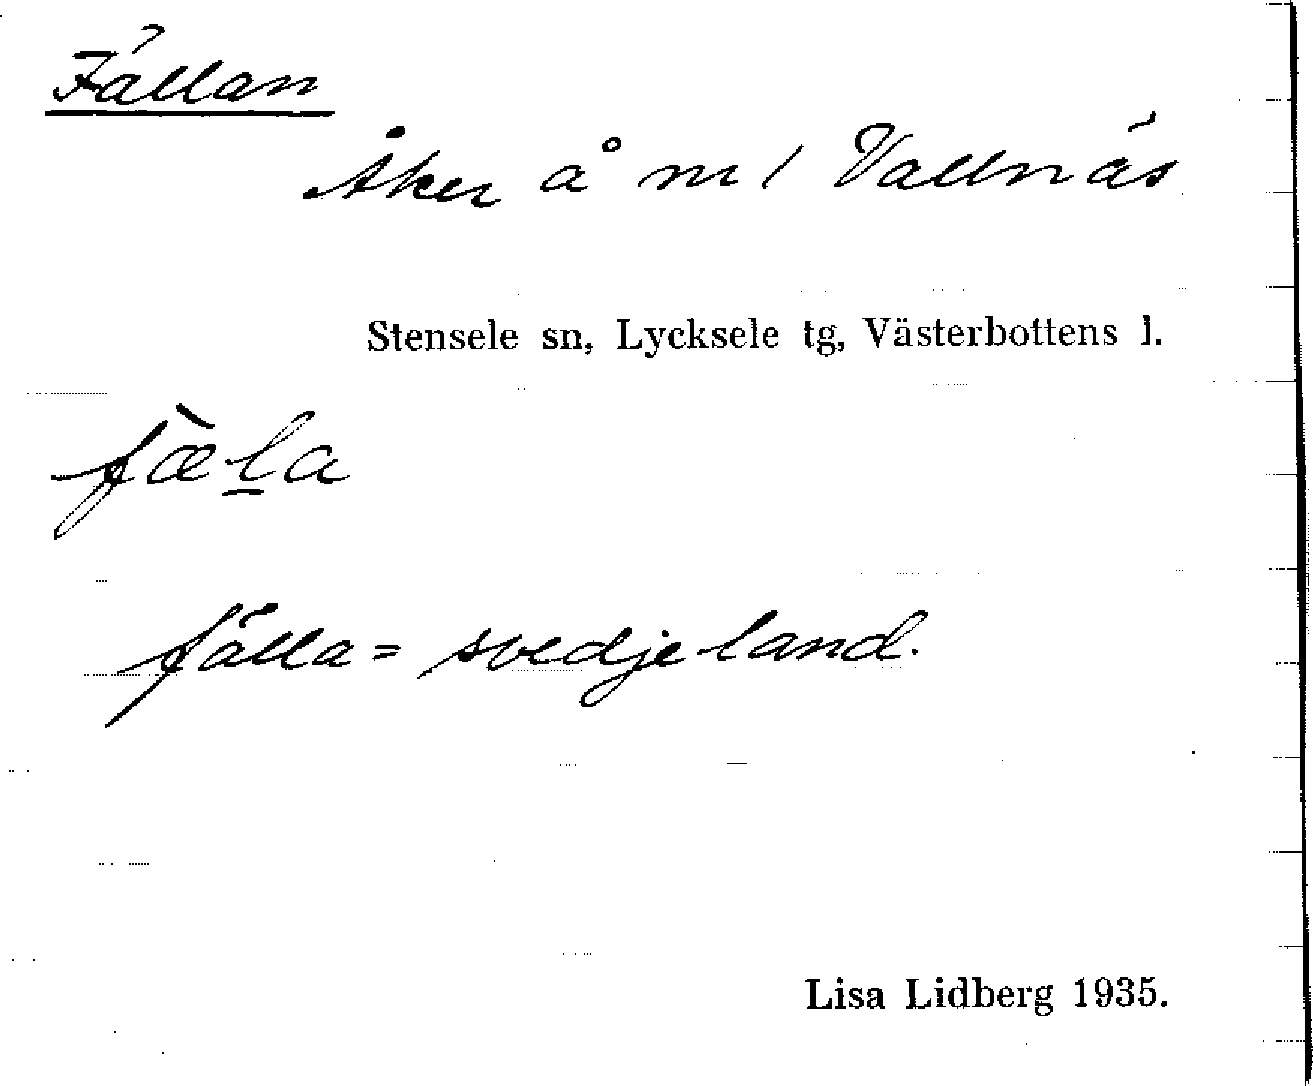 Fällan
Åker å nr 1 Vallnäs
Stensele sn, Lycksele tg, Västerbottens l.
fæ̀l̲a
fälla = svedjeland.
Lisa Lidberg 1935.